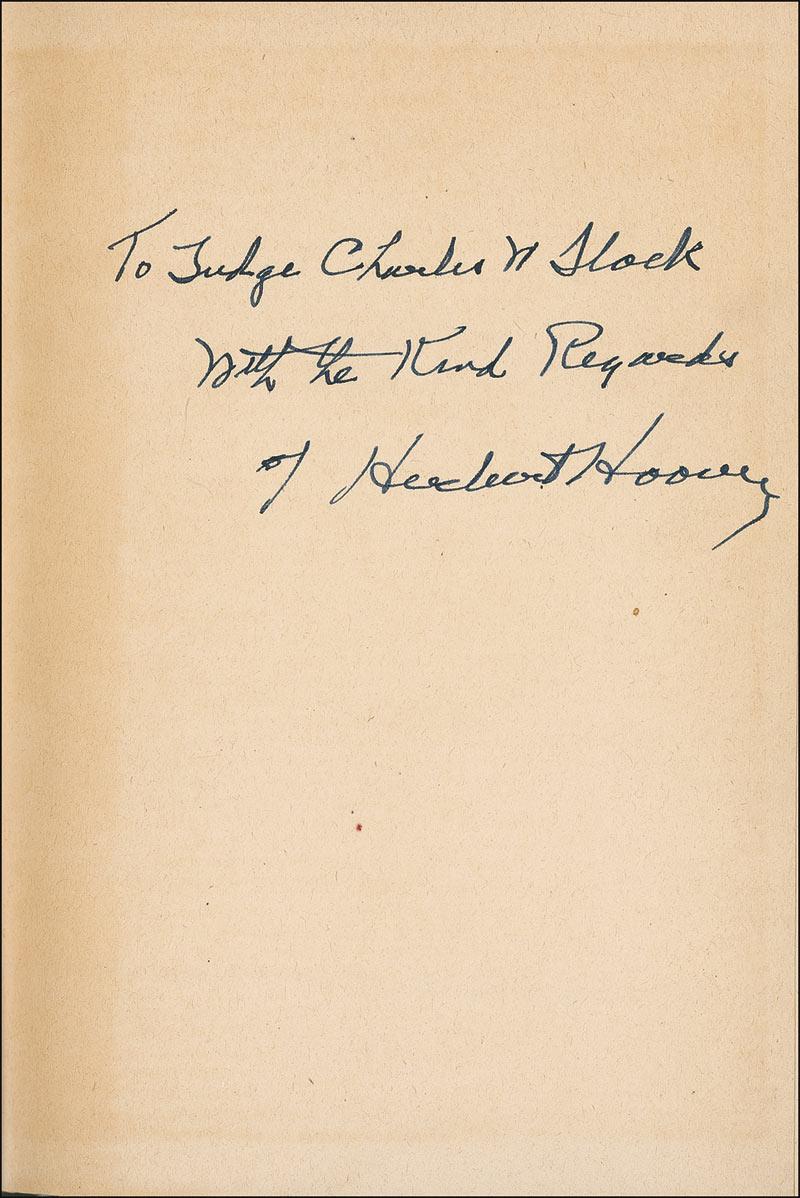 To Judge Charles N Flock
With the Kind Regards
of Herbert Hoover